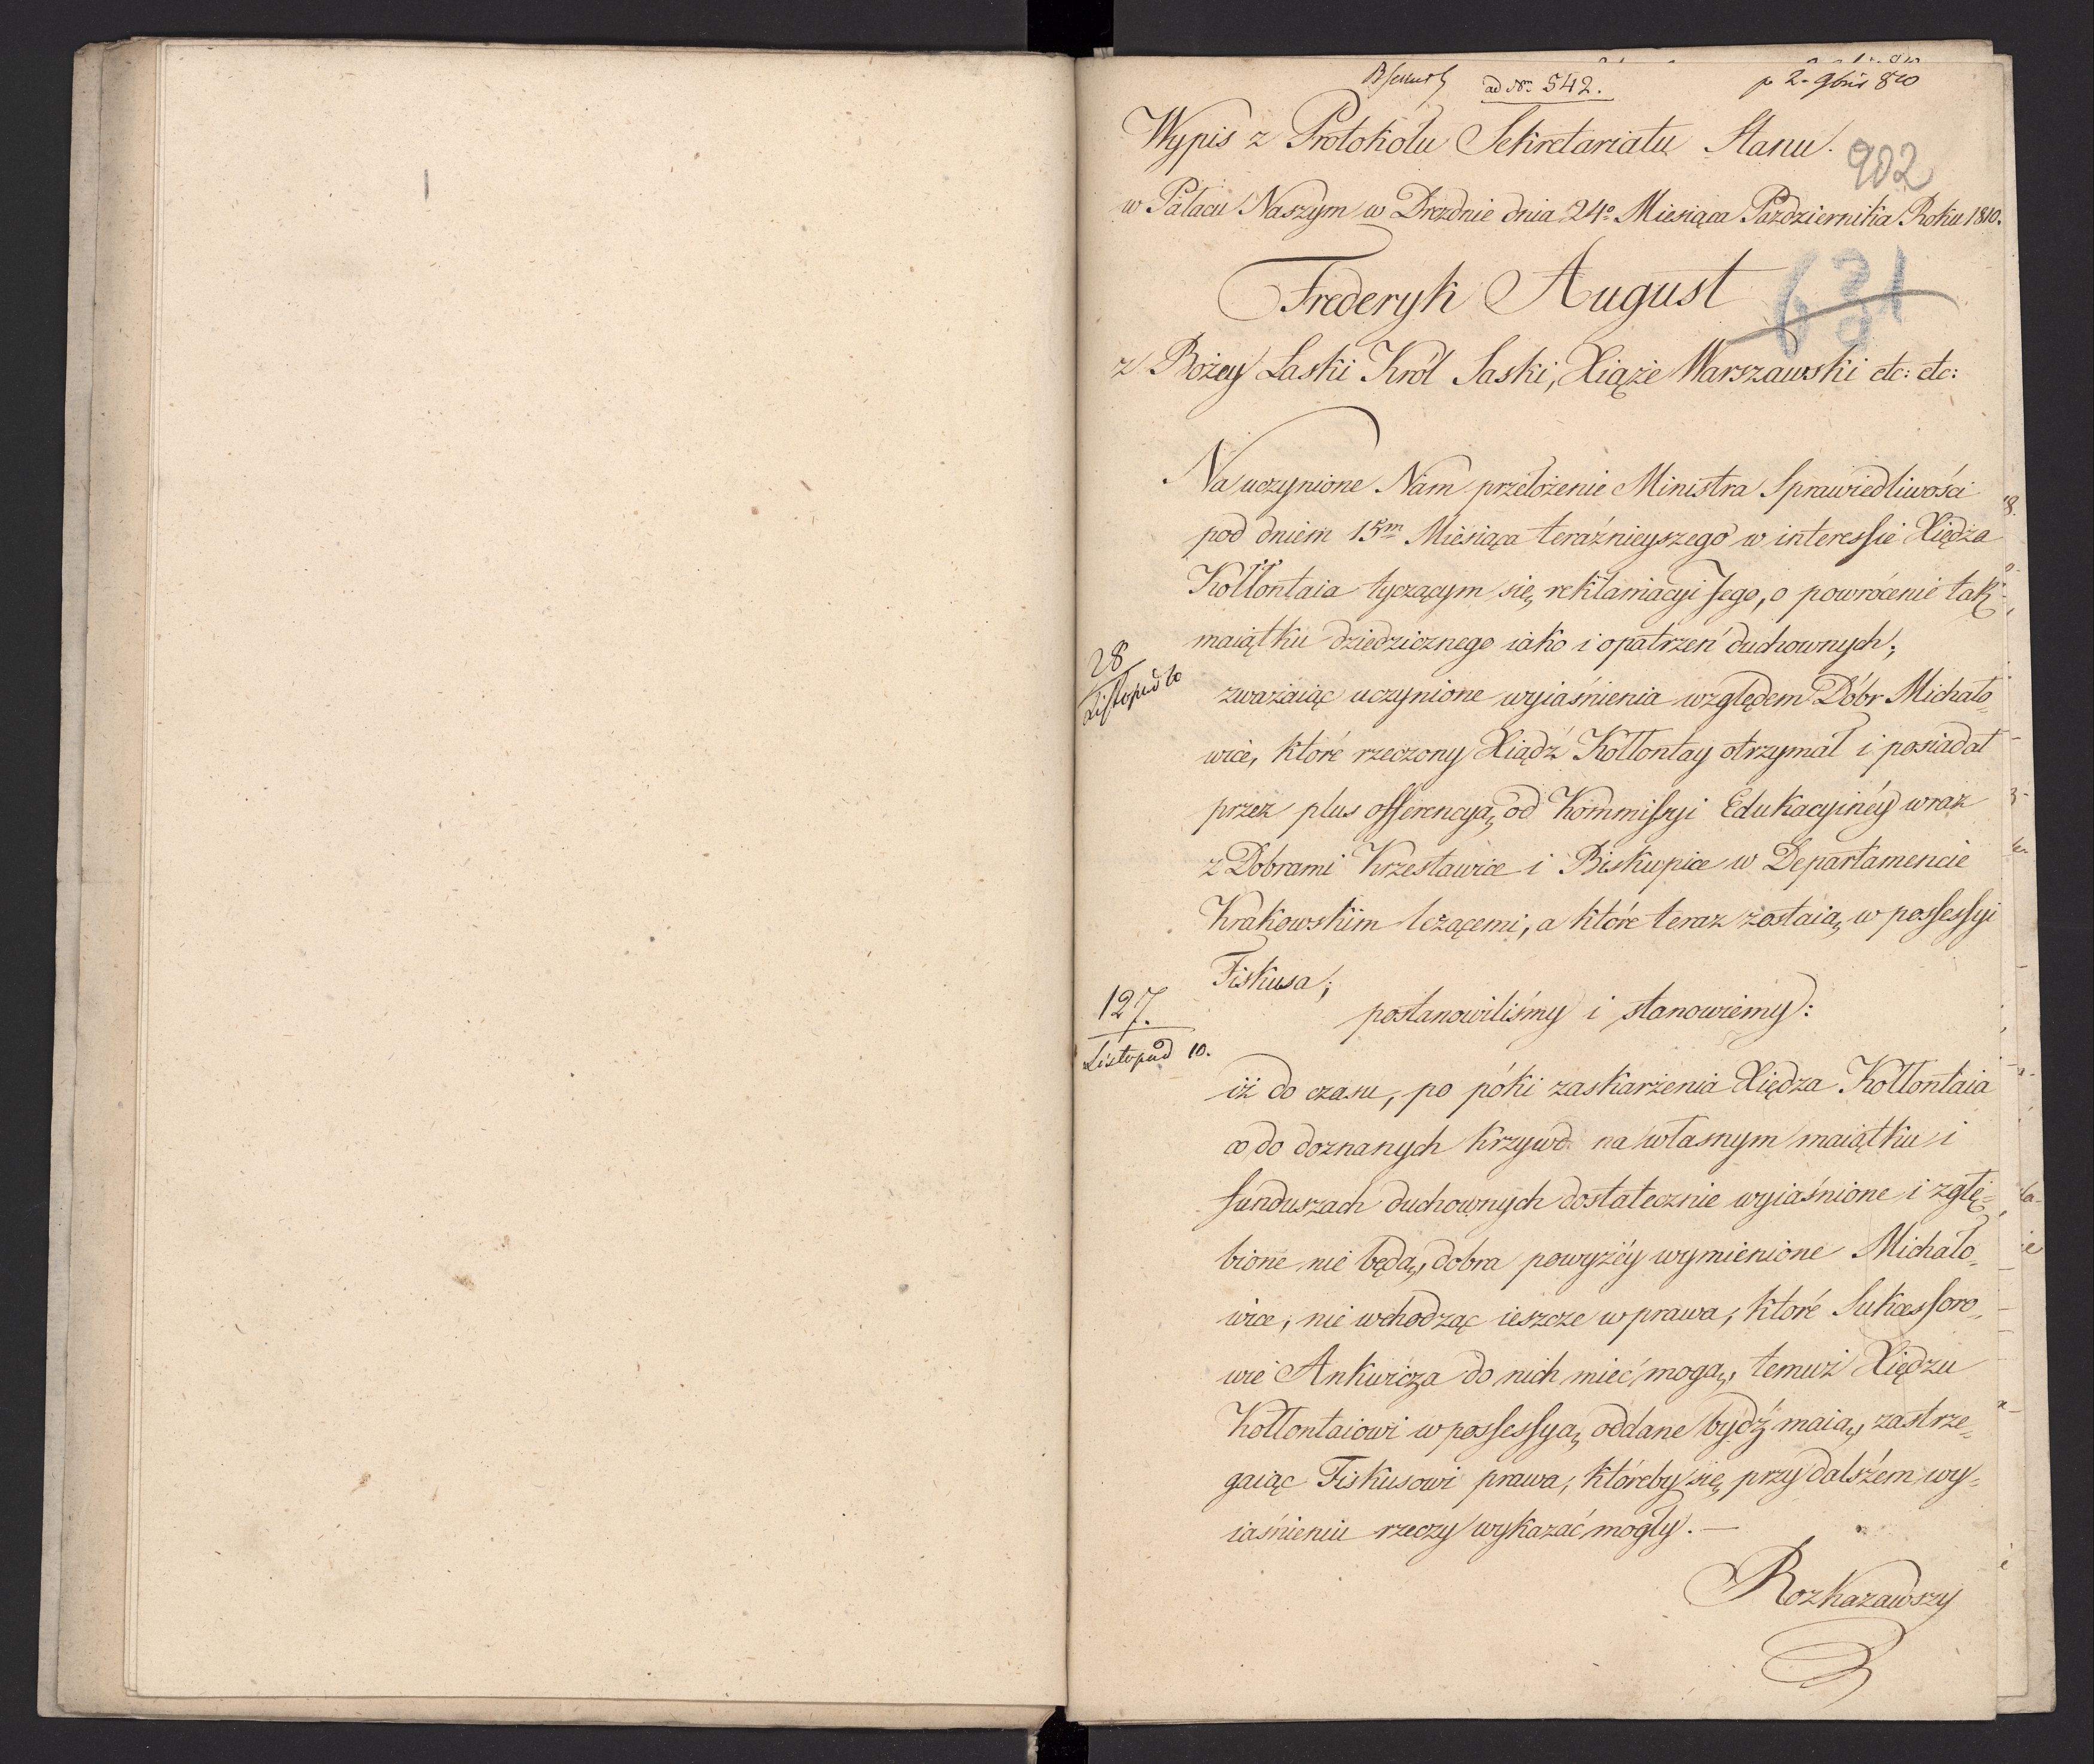 ad Nm 542.
p 2. 9bris 810
Wypis z Protokołu Sekretariatu Stanu.
902
w Pałacu Naszym w Dreźdnie dnia 24o Miesiąca Października Roku 1810.
Frederyk August
631
z Bożey Łaski Król Saski, Xiąże Warszawski etc: etc:
Na uczynione Nam przełożenie Ministra Sprawiedliwości
pod dniem 15m Miesiąca teraźnieyszego w interessie Xiędza
Kołłontaia tyczącym się reklamacyi Jego, o powrócenie tak
maiątku dziedzicznego iako i opatrzeń duchownych;
28
Listopad 10
zważaiąc uczynione wyiaśnienia względem Dóbr Michało=
wice, które rzeczony Xiądz Kołłontay otrzymał i posiadał
przez plus offerencyą od Kommissyi Edukacyinéy wraz
z Dobrami Krzesławice i Biskupice w Departamencie
Krakowskim leżącemi, a które teraz zostaią w possessyi
Fiskusa;
127.
Listopad 10.
postanowiliśmy i stanowiemy:
iż do czasu, po póki zaskarżenia Xiędza Kołłontaia
co do doznanych krzywd na własnym maiątku i
funduszach duchownych dostatecznie wyiaśnione i zgłę=
bione nie będą, dobra powyżéy wymienione Michało=
wice, nie wchodząc ieszcze w prawa, które Sukcessoro=
wie Ankwicza do nich mieć mogą, temuż Xiędzu
Kołłontaiowi w possessyą oddane bydź maią, zastrze=
gaiąc Fiskusowi prawa, któreby się przy dalszém wy=
iaśnieniu rzeczy wykazać mogły. —
Rozkazawszy